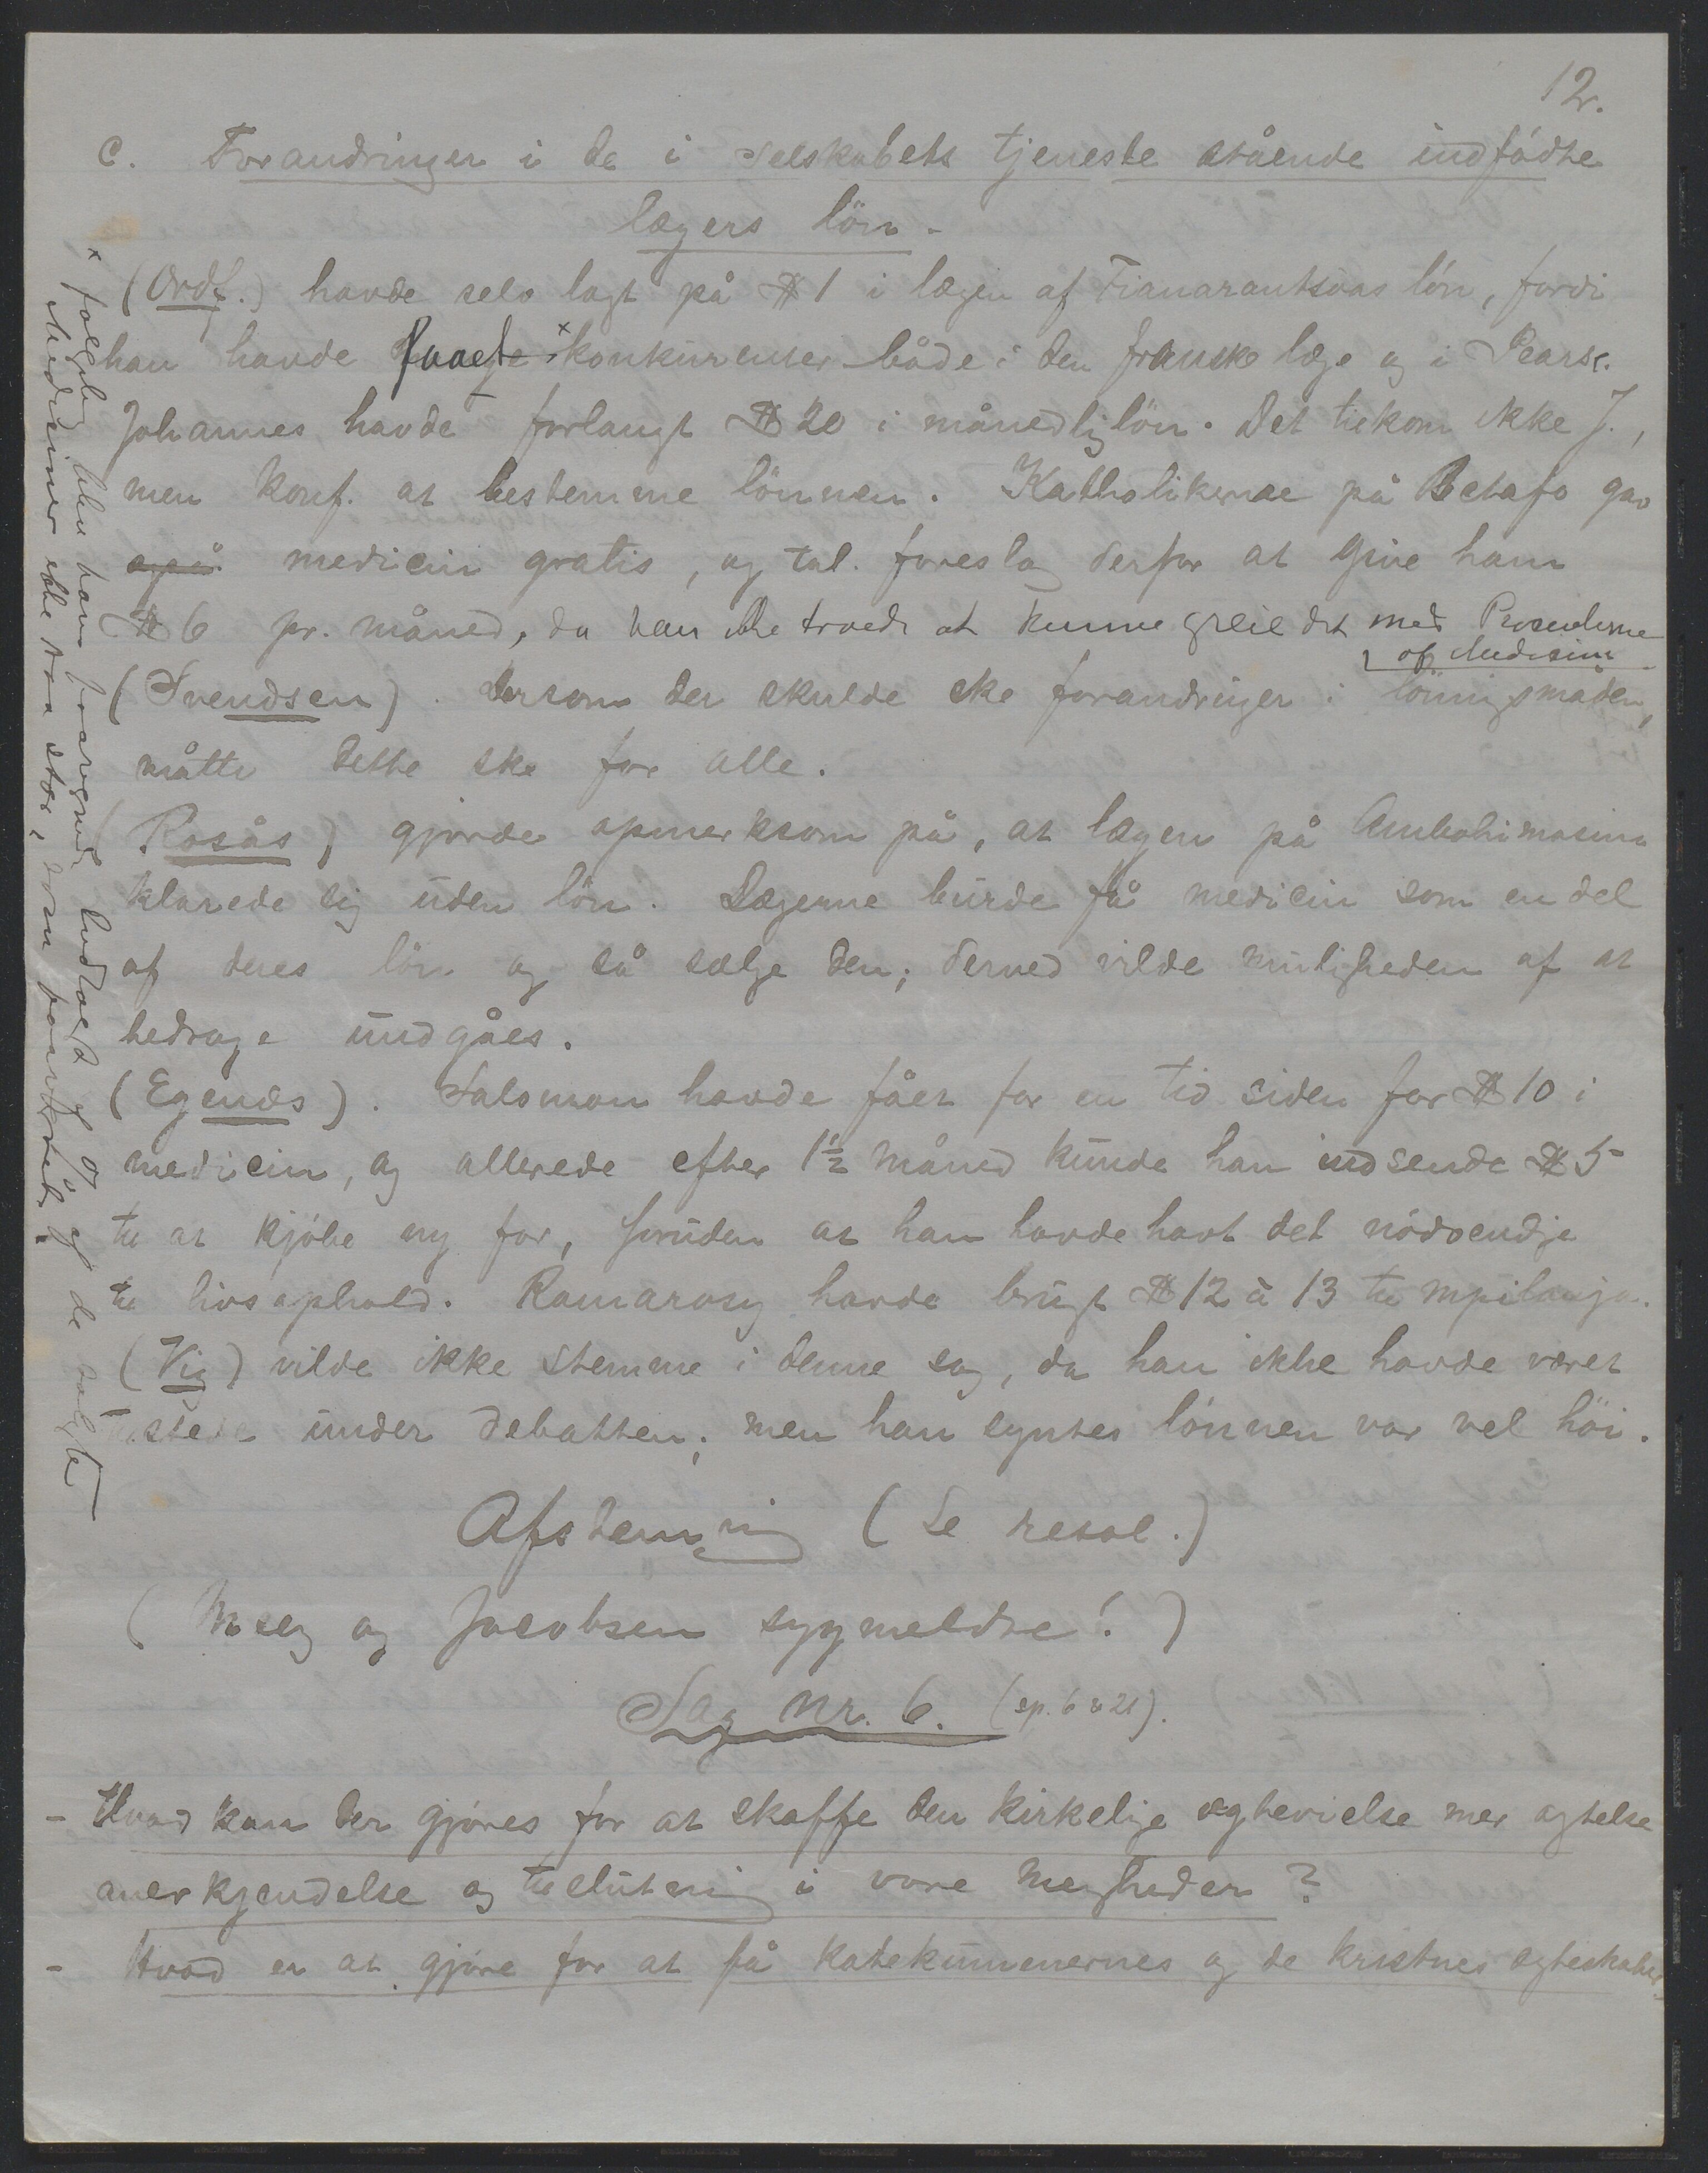 12.
c. Forandringer i de i Selskabets tjeneste stående indfødte
lægers lön.
(Ordf.) havde selv lagt på $ 1 i lægen af Fianarantsoas lön, fordi
han havde konkurenser både i den franske læge og i Pearse.
Johannes havde forlangt $ 20 i månedlig lön. Det tilkom ikke J.,
men konf. at bestemme lönnen. Katholikerne på Betafo gav
også medicin gratis, og tal. foreslog derfor at give ham
$ 6 pr. måned, da han ikke troede at kunne greie det med Prosenterne
af Medisin
(Svendsen). Dersom der skulde ske forandringer i lönningsmåden,
måtte dette ske for alle.
(Rosås) gjorde opmerksom på, at lægen på Ambohimasina
klarede sig uden lön. Lægerne burde få medicin som en del
af deres lön og så sælge den; derved vilde muligheden af at
bedrage undgåes.
(Egenæs). Salomon havde fået for en tid siden for $ 10 i
medicin, og allerede efter 1½ måned kunde han indsende $ 5
til at kjöbe ny for, foruden at han havde havt det nödvendige
til livsophold. Ramarosy havde brugt $ 12 à 13 til mpilanja.
(Vig) vilde ikke stemme i denne sag, da han ikke havde været
tilstede under debatten; men han syntes lönnen var vel höi.
Afstemning (Se resol.)
( og Jacobsen sygmeldte!)
Sag nr. 6. (sp. 6 & 21).
- Hvad kan der gjöres for at skaffe den kirkelige ægtevielse mer agtelse
anerkjendelse og tilslutning i vore menigheder?
- Hvad er at gjöre for at få katekumenernes og de kristnes ægteskaber
x følgelig blev hans Indtægt af de solgte
Mediciner ikke saa stor, som paaregnet.